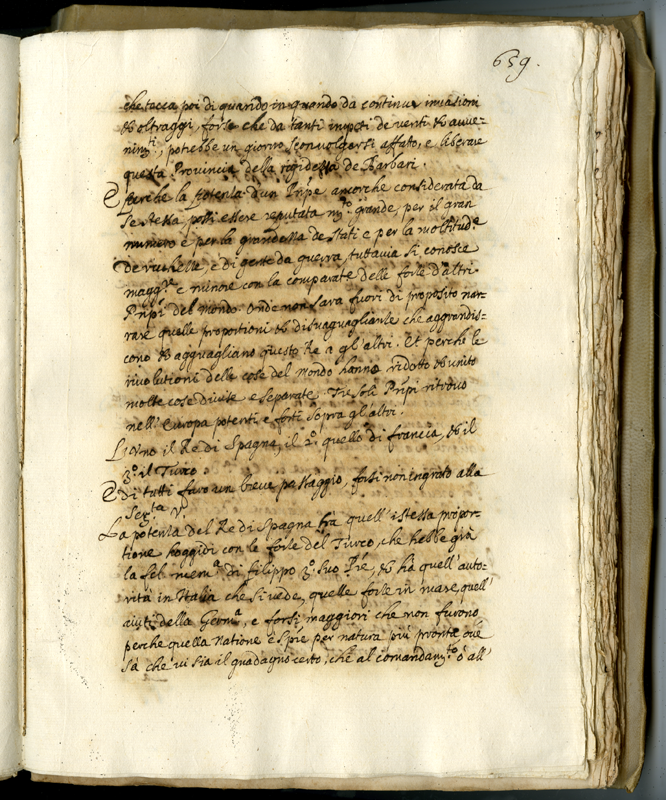 659.
che tocca poi di quando in quando da continue invasioni
& oltraggi, forse che da tanti impeti de venti & avve-
nim.ti, potrebbe un giorno sconvolgersi affatto, e liberare
questa Provincia della rigidezza de Barbari.
E perche la potenza d'un Prñpe ancorche considerata da
se stessa possi essere reputata m.to grande, per il gran
numero e per la grandezza de stati e per la moltitude
de richezze, e di gente da guerra, tuttavia si conosce
magg.re e minore con la comparate delle forze d'altri
Prñpi del mondo. Onde non sara fuori di proposito nar-
rare quelle proportioni & disuguaglianze che aggrandis-
cono & agguagliano questo Re a gl'altri. Et perche le
rivolutioni delle cose del mondo hanno ridotto & unito
molte cose divise e separate. Tre soli Prñpi ritrovo
nell'Europa potenti e forti sopra gl'altri.
L'uno il Re di Spagna, il 2.o quello di francia, & il
3.o il Turco
E di tutti farò un breve passaggio, forsi non ingrato alla
Ser.ta V.
La potenza del Re di Spagna ha quell'istessa propor-
tione hoggidi con le forze del Turco, che hebbe già
la fel. mem.a di filippo 2.o suo P̃re, & hà quell'auto-
rità in Italia che si vede, quelle forze in mare, quell'
aiuti della Germ.a, e forsi maggiori che non furono
perche quella natione è spre per natura più pronta ove
sà che vi sia il guadagno certo, che al comandam.to ò all'